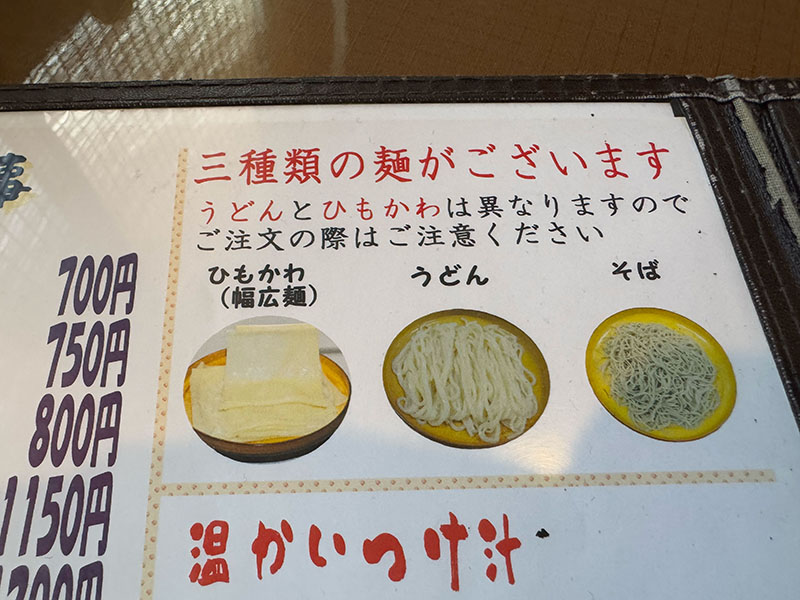 事
700円
750円
800円
1150円
三種類の麺がございます
うどんとひもかわは異なりますので
ご注文の際はご注意ください
ひもかわ
（幅広麺）
うどん
そば
温かいつけ汁